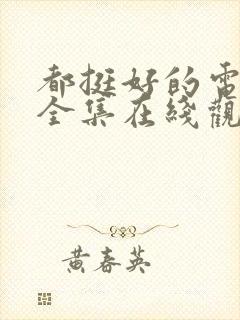 都挺好的電
全集在綫觀
黃春英